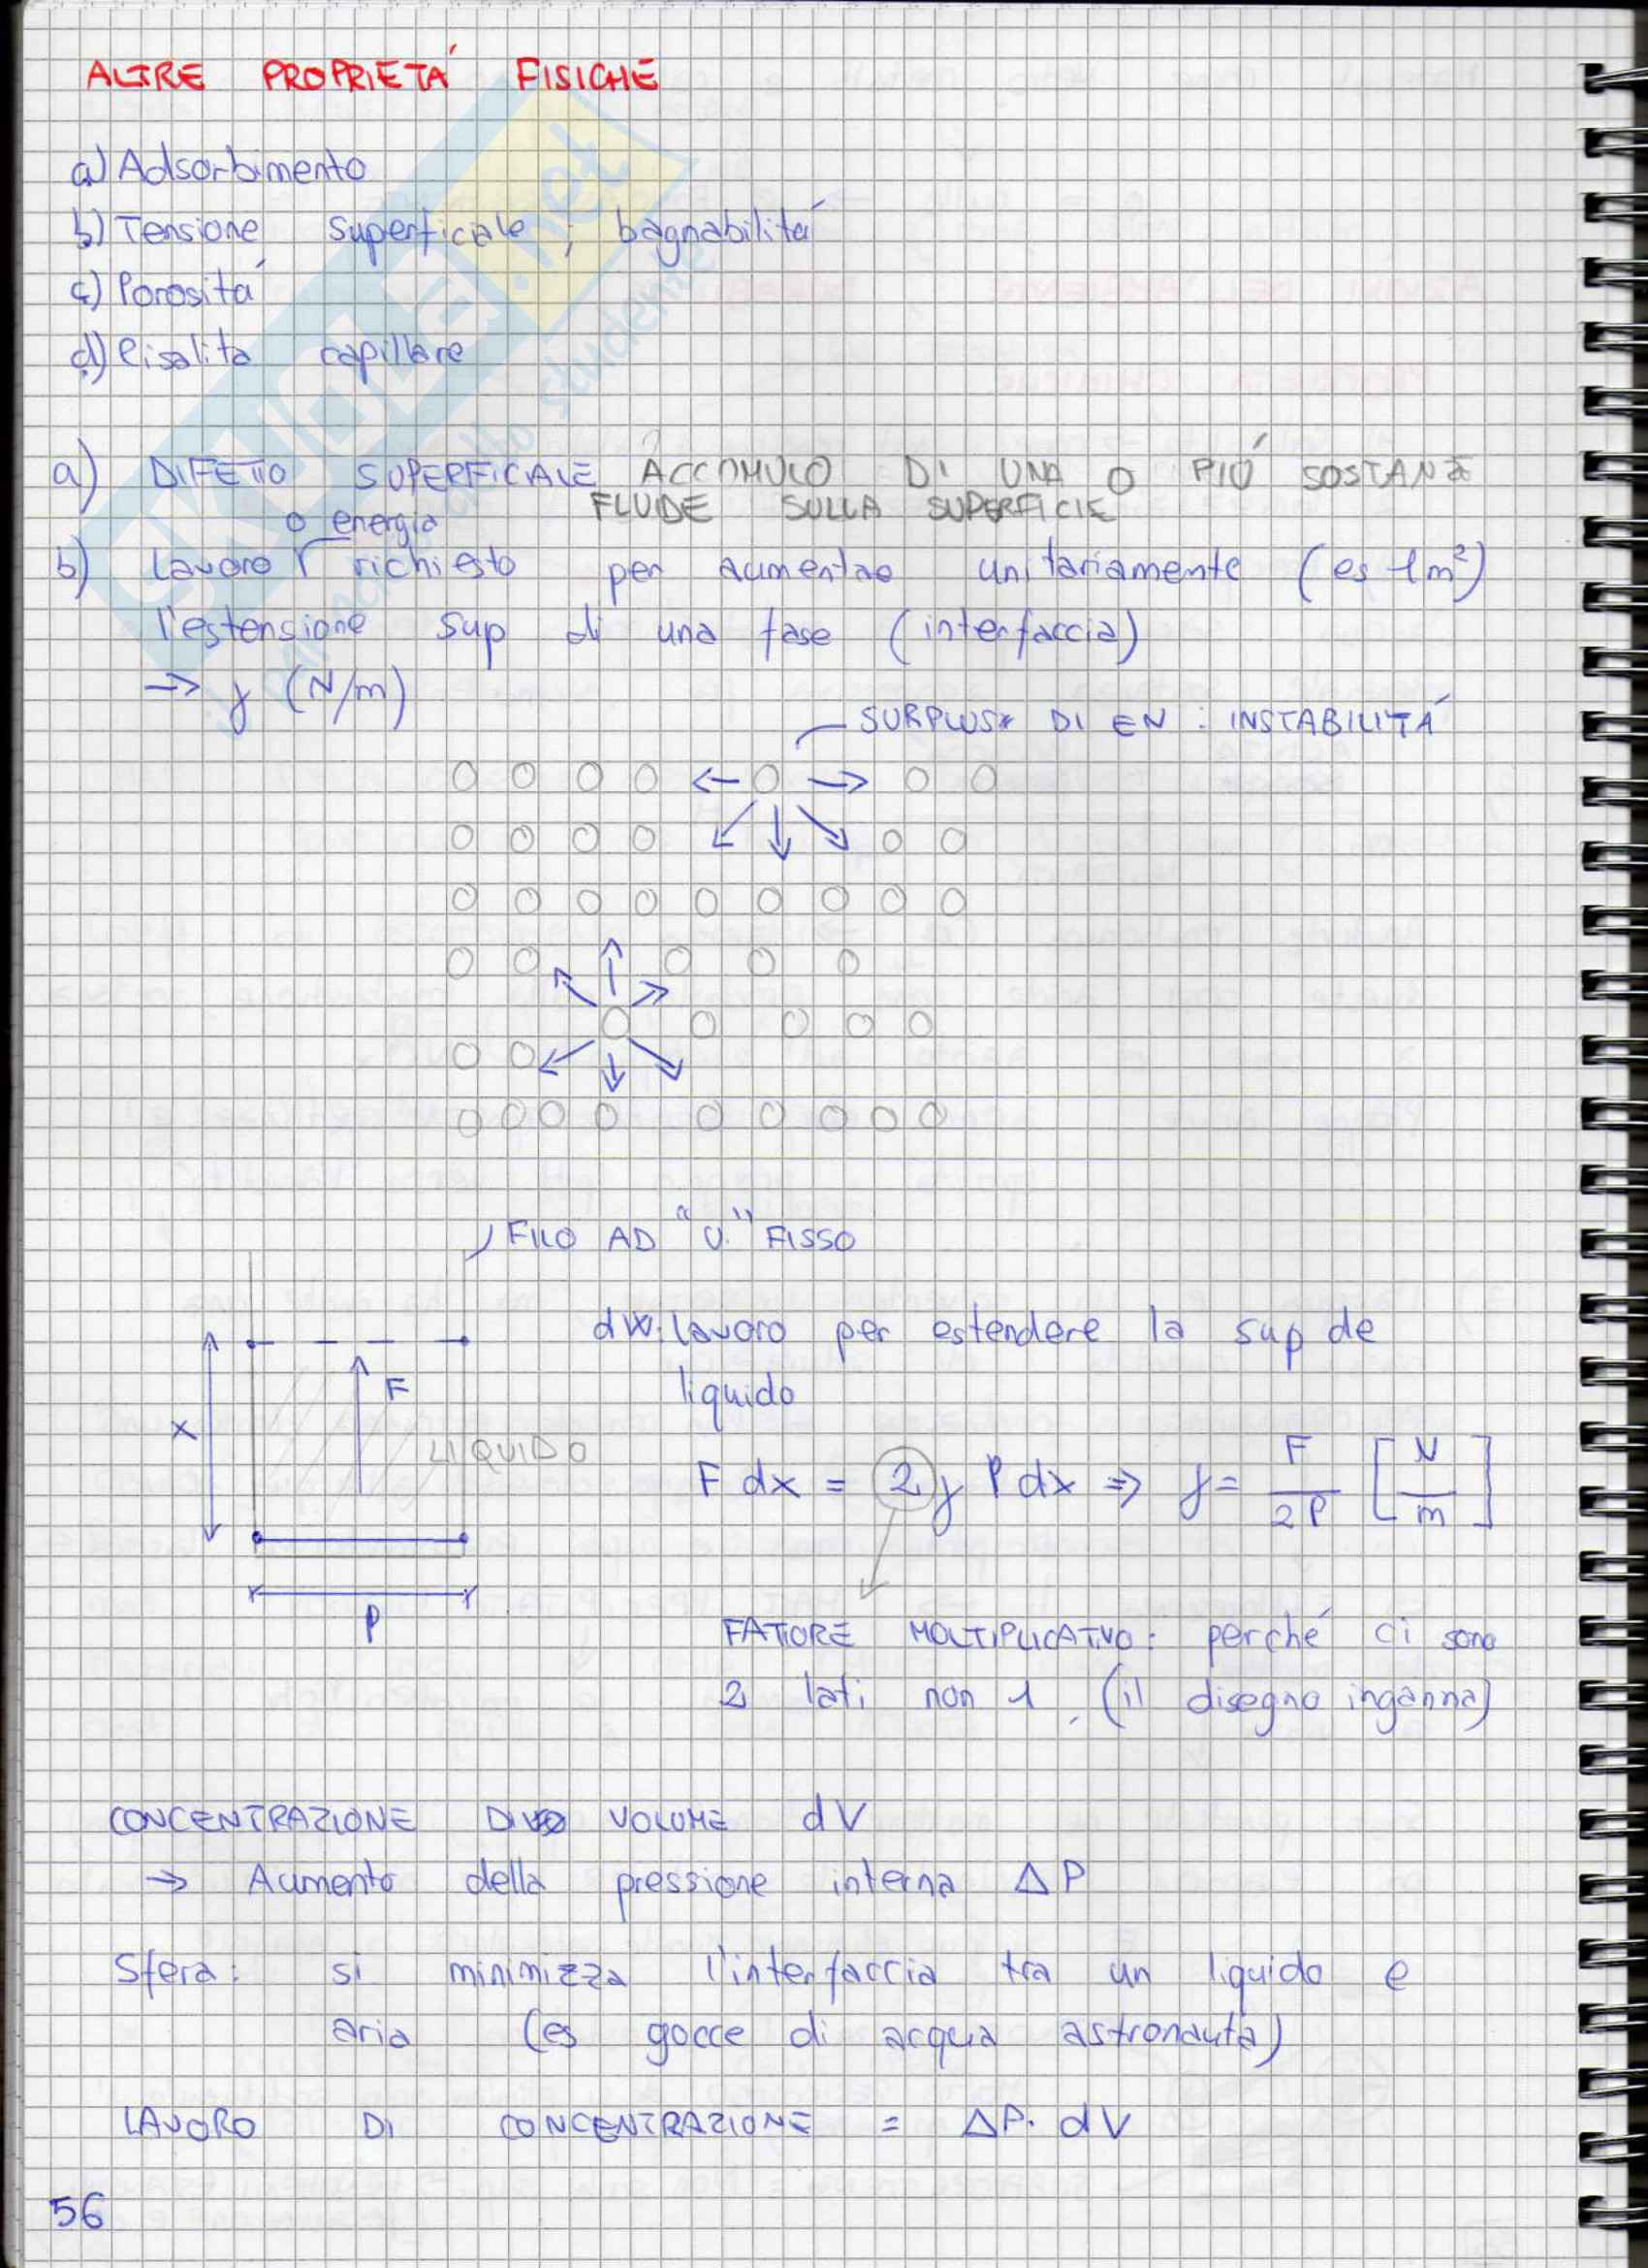 ALTRE PROPRIETÁ FISICHE
a) Adsorbimento
b) Tensione superficiale; bagnabilitá
c) Porositá
d) Risalita capillare
a) DIFETTO SUPERFICALE ACCUMULO DI UNA O PIÚ SOSTANZE
FLUIDE SULLA SUPERFICIE
o energia
b) lavoro richiesto per aumentae unitariamente (es 1m²)
l'estensione sup di una fase (interfaccia)
→ γ (N/m)
SURPLUS DI EN : INSTABILITÁ
FILO AD "U" FISSO
dW: lavoro per estendere la sup de
liquido
X
F
LIQUIDO
F dx = 2 γ l dx ⇒ γ = F / 2l [N/m]
l
FATTORE MOLTIPLICATIVO: perché ci sono
2 lati non 1, (il disegno inganna)
CONCENTRAZIONE DI VOLUME dV
→ Aumento della pressione interna ΔP
Sfera: si minimizza l'interfaccia tra un liquido e
aria (es gocce di acqua astronauta)
LAVORO DI CONCENTRAZIONE = ΔP. dV
56
SKUOLA.net
il paradiso dello studente